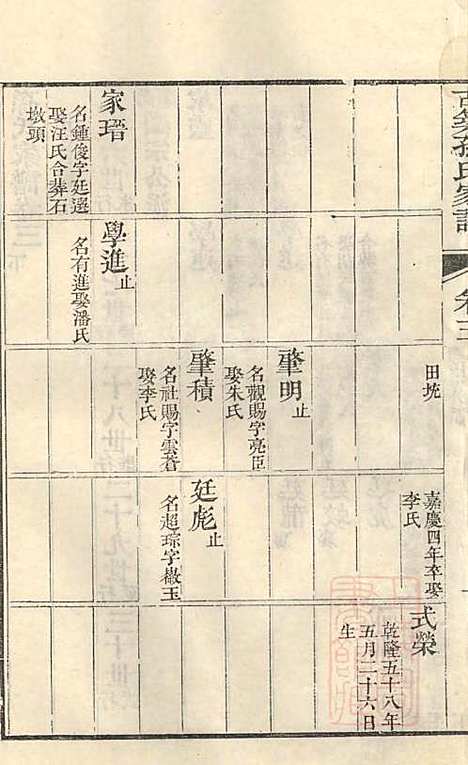 古築孫氏家譜
卷三
田圵
嘉慶四年卒娶
李氏
式榮
乾隆五十八年
五月二十六日
生
肇明止
名觀賜字亮臣
娶朱氏
肇積
名社賜字雲蒼
娶李氏
廷彪止
名超琮字徽玉
學進止
名有進娶潘氏
家瑨
名鍾俊字廷選
娶汪氏合葬石
墩頭